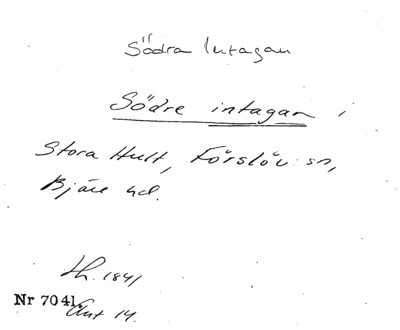 Södra Intagan
Södre intagan i
Stora Hult, Förslöv sn,
Bjäre hd.
Lh. 1841
Nr 7041. Ant 14.